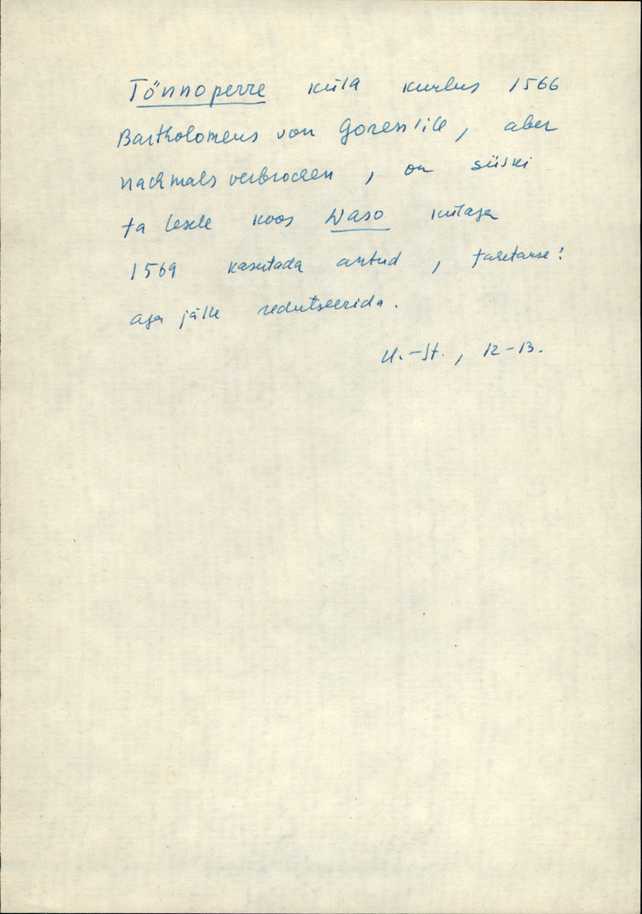 Tönnoperre küla kuulus 1566
Bartholomeus von Gorentile, aber
nachmals verbrochen, on siiski
ta lesele koos Waso külaga
1569 kasutada antud,
aga jälle redutseerida.
U.-St., 12-13.